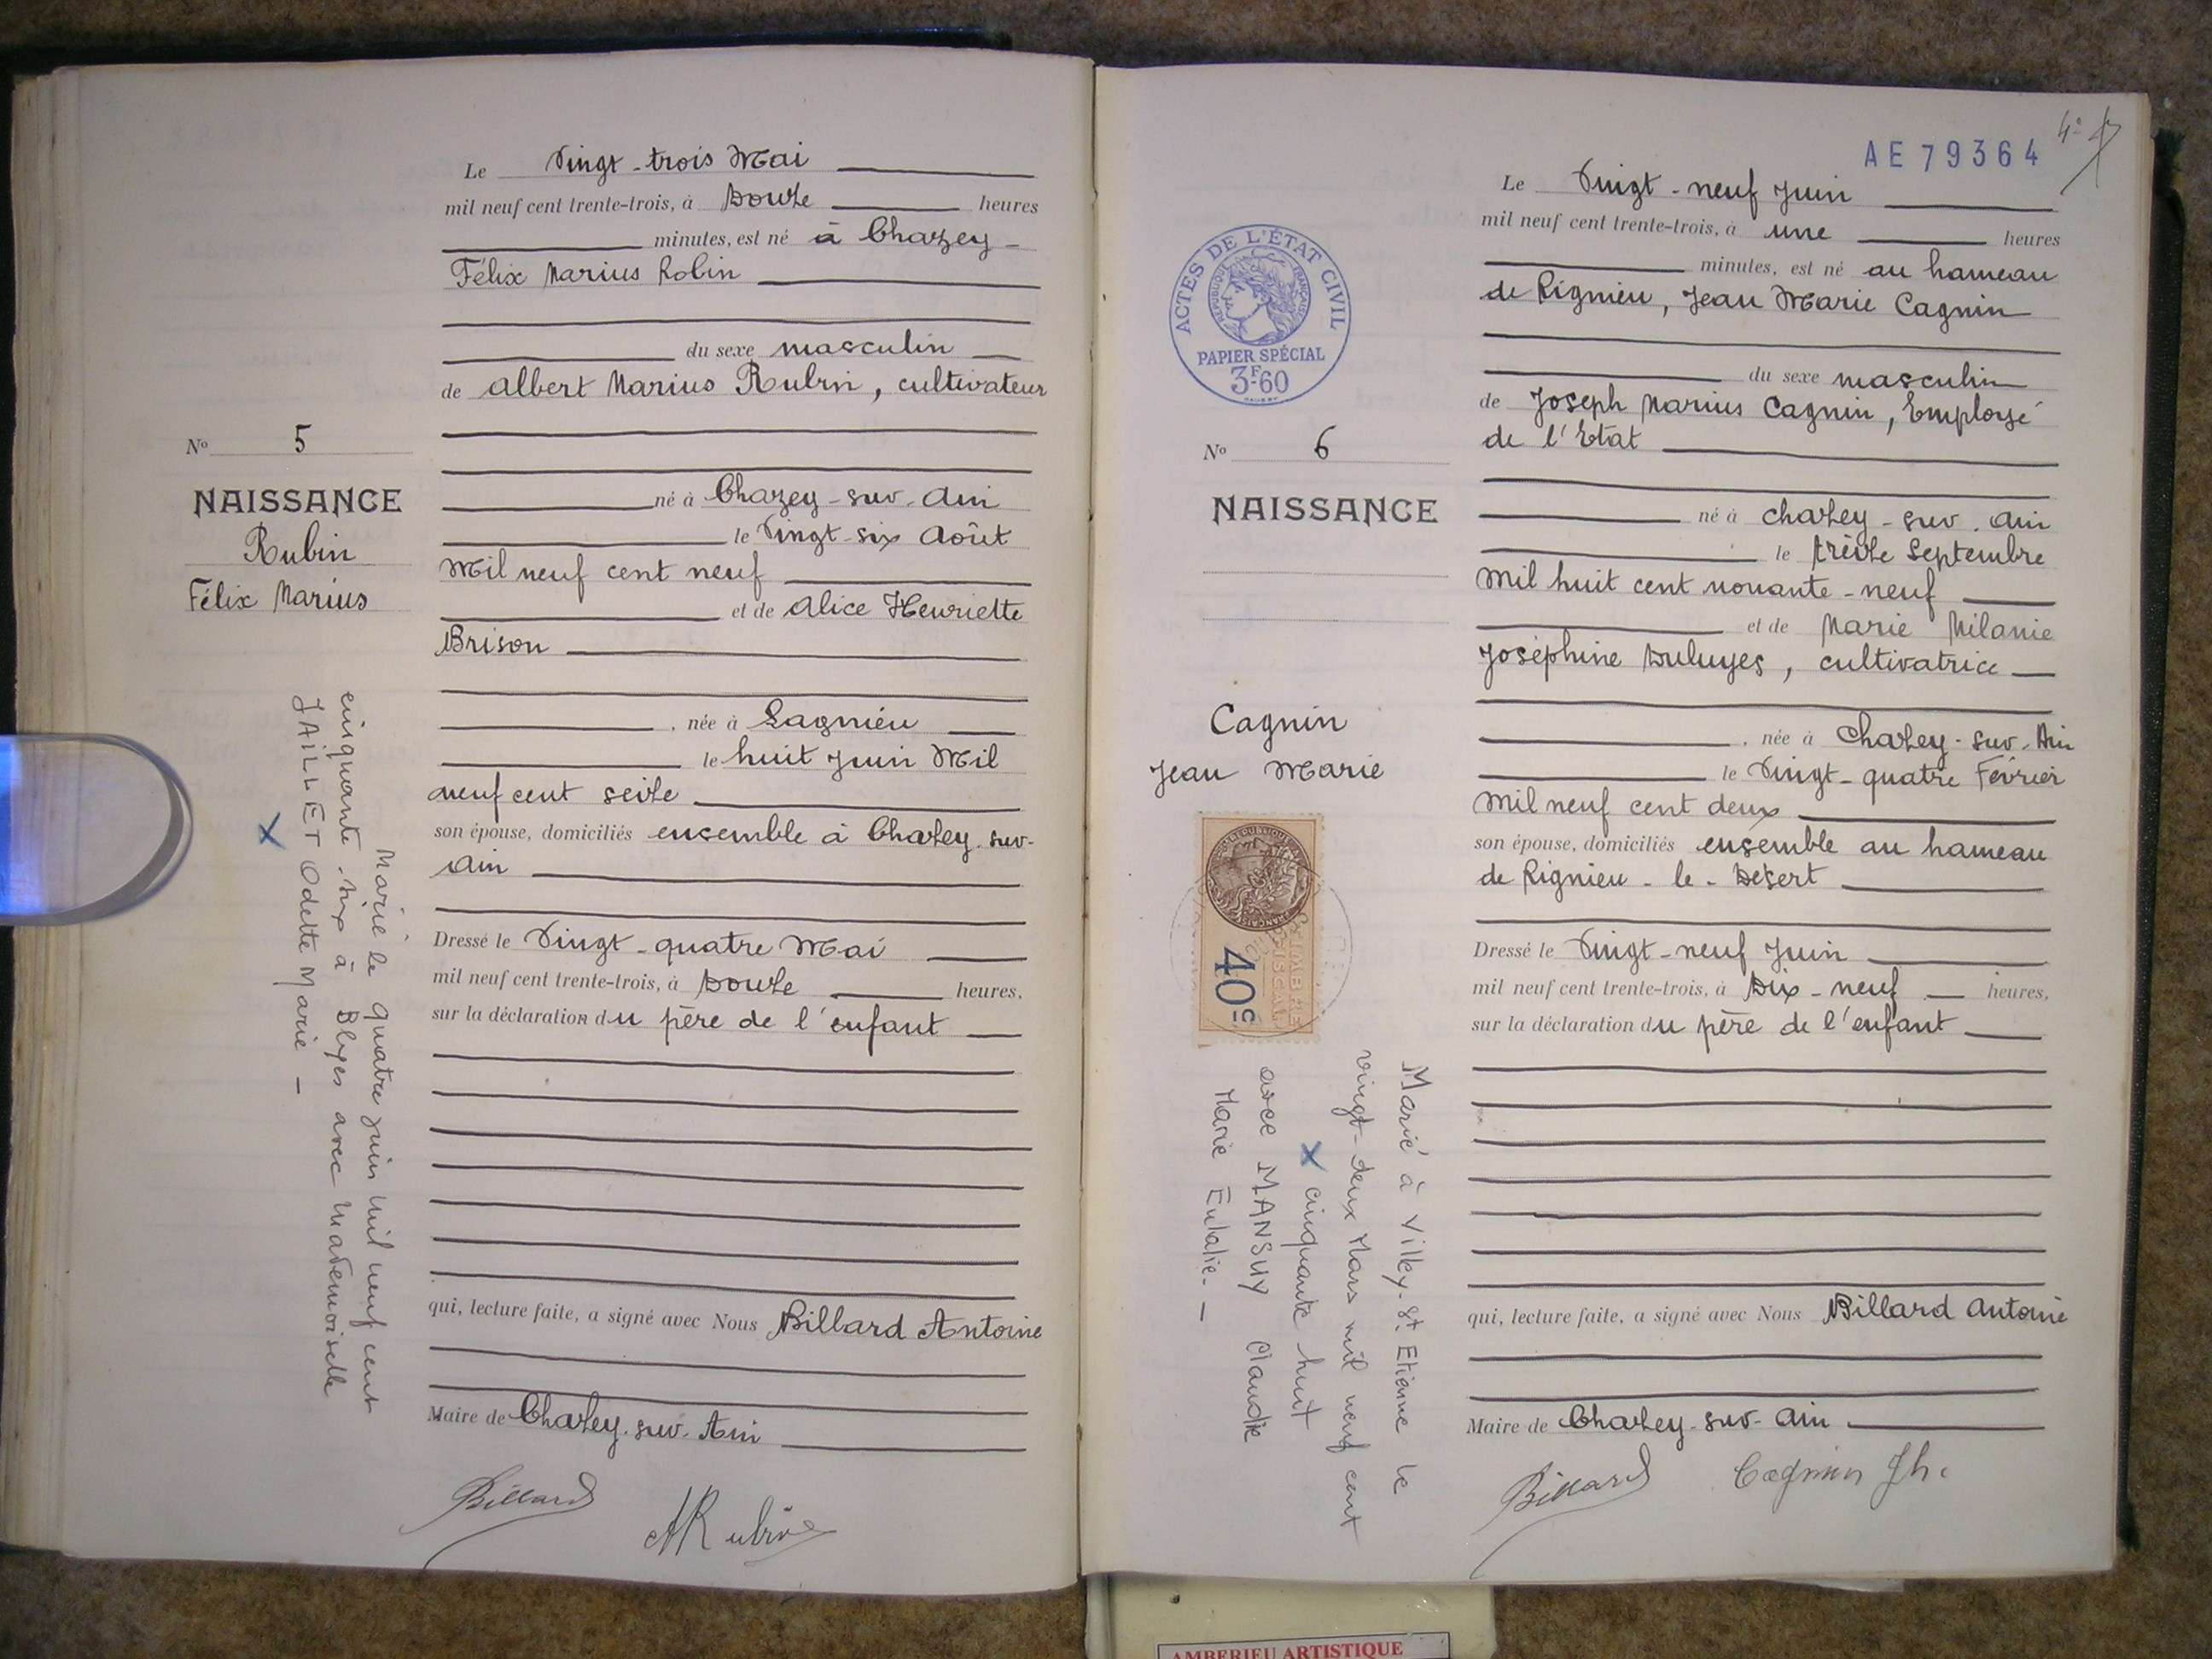 Le Vingt-trois Mai
mil neuf cent trente-trois, à Douze heures
minutes, est né à Chazey-
Félix Marius Robin
du sexe masculin
de Albert Marius Rubin, cultivateur
né à Chazey-sur-Ain
le Vingt-six Août
Mil neuf cent neuf
et de Alice Henriette
Brison
, née à Lagnieu
le huit Juin Mil
neuf cent seize
son épouse, domiciliés ensemble à Chazey-sur-
Ain
Dressé le Vingt-quatre Mai
mil neuf cent trente-trois, à Douze heures.
sur la déclaration du père de l'enfant
qui, lecture faite, a signé avec Nous Billard Antoine
Maire de Chazey-sur-Ain
Billard
ARubin
No 5
NAISSANCE
Rubin
Félix Marius
Marié le quatre juin mil neuf cent
cinquante-six à Blyes avec Mademoiselle
JAILLET Odette Marie -
X
AE 79364
4e
Le Vingt-neuf Juin
mil neuf cent trente-trois, à une heures
minutes, est né au hameau
de Rignieu, Jean Marie Cagnin
du sexe masculin
de Joseph Marius Cagnin, Employé
de l'Etat
né à Chazey-sur-Ain
le treize Septembre
Mil huit cent nonante-neuf
et de Marie Mélanie
Joséphine Duluyes, cultivatrice
, née à Chazey-sur-Ain
le Vingt-quatre Février
Mil neuf cent deux
son épouse, domiciliés ensemble au hameau
de Rignieu-le-Désert
Dressé le Vingt-neuf Juin
mil neuf cent trente-trois, à Dix-neuf heures,
sur la déclaration du père de l'enfant
qui, lecture faite, a signé avec Nous Billard Antoine
Maire de Chazey-sur-Ain
Billard
Cagnin Jh.
ACTES DE L'ÉTAT CIVIL
RÉPUBLIQUE FRANÇAISE
PAPIER SPÉCIAL
3F.60
No 6
NAISSANCE
Cagnin
Jean Marie
RÉPUBLIQUE FRANÇAISE
TIMBRE
FISCAL
40c
Marié à Villey-St. Etienne le
vingt-deux Mars mil neuf cent
X cinquante huit
avec MANSUY Claudie
Marie Eulalie. -
AMBERIEU ARTISTIQUE